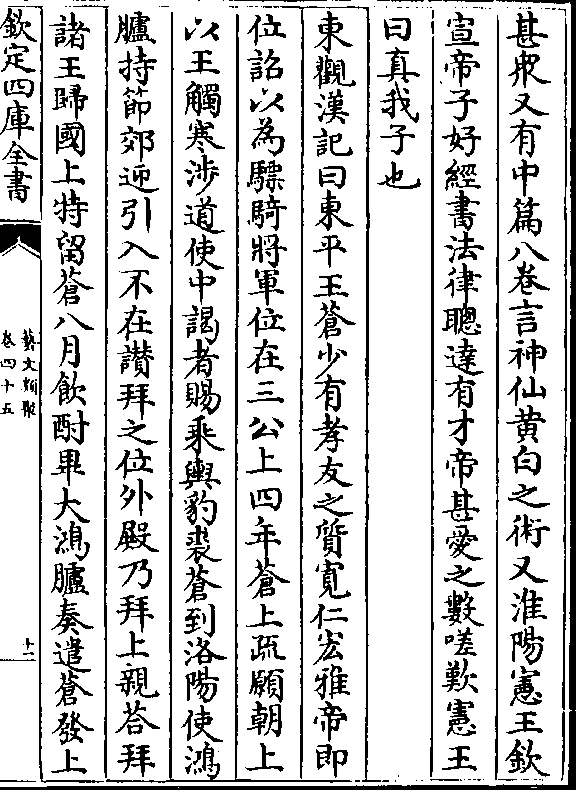 甚衆又有中篇八卷言神仙黄白之術又淮陽憲王欽
宣帝子好經書法律聰達有才帝甚愛之數嗟歎憲王
曰真我子也
東觀漢記曰東平王蒼少有孝友之質寛仁宏雅帝即
位詔以為驃騎將軍位在三公上四年蒼上疏願朝上
以王觸寒涉道使中謁者賜乘輿豹裘蒼到洛陽使鴻
臚持節郊迎引入不在讃拜之位外殿乃拜上親荅拜
諸王歸國上特留蒼八月飲酎畢大鴻臚奏遣蒼發上
欽定四庫全書
藝文類聚
卷四十五
十二